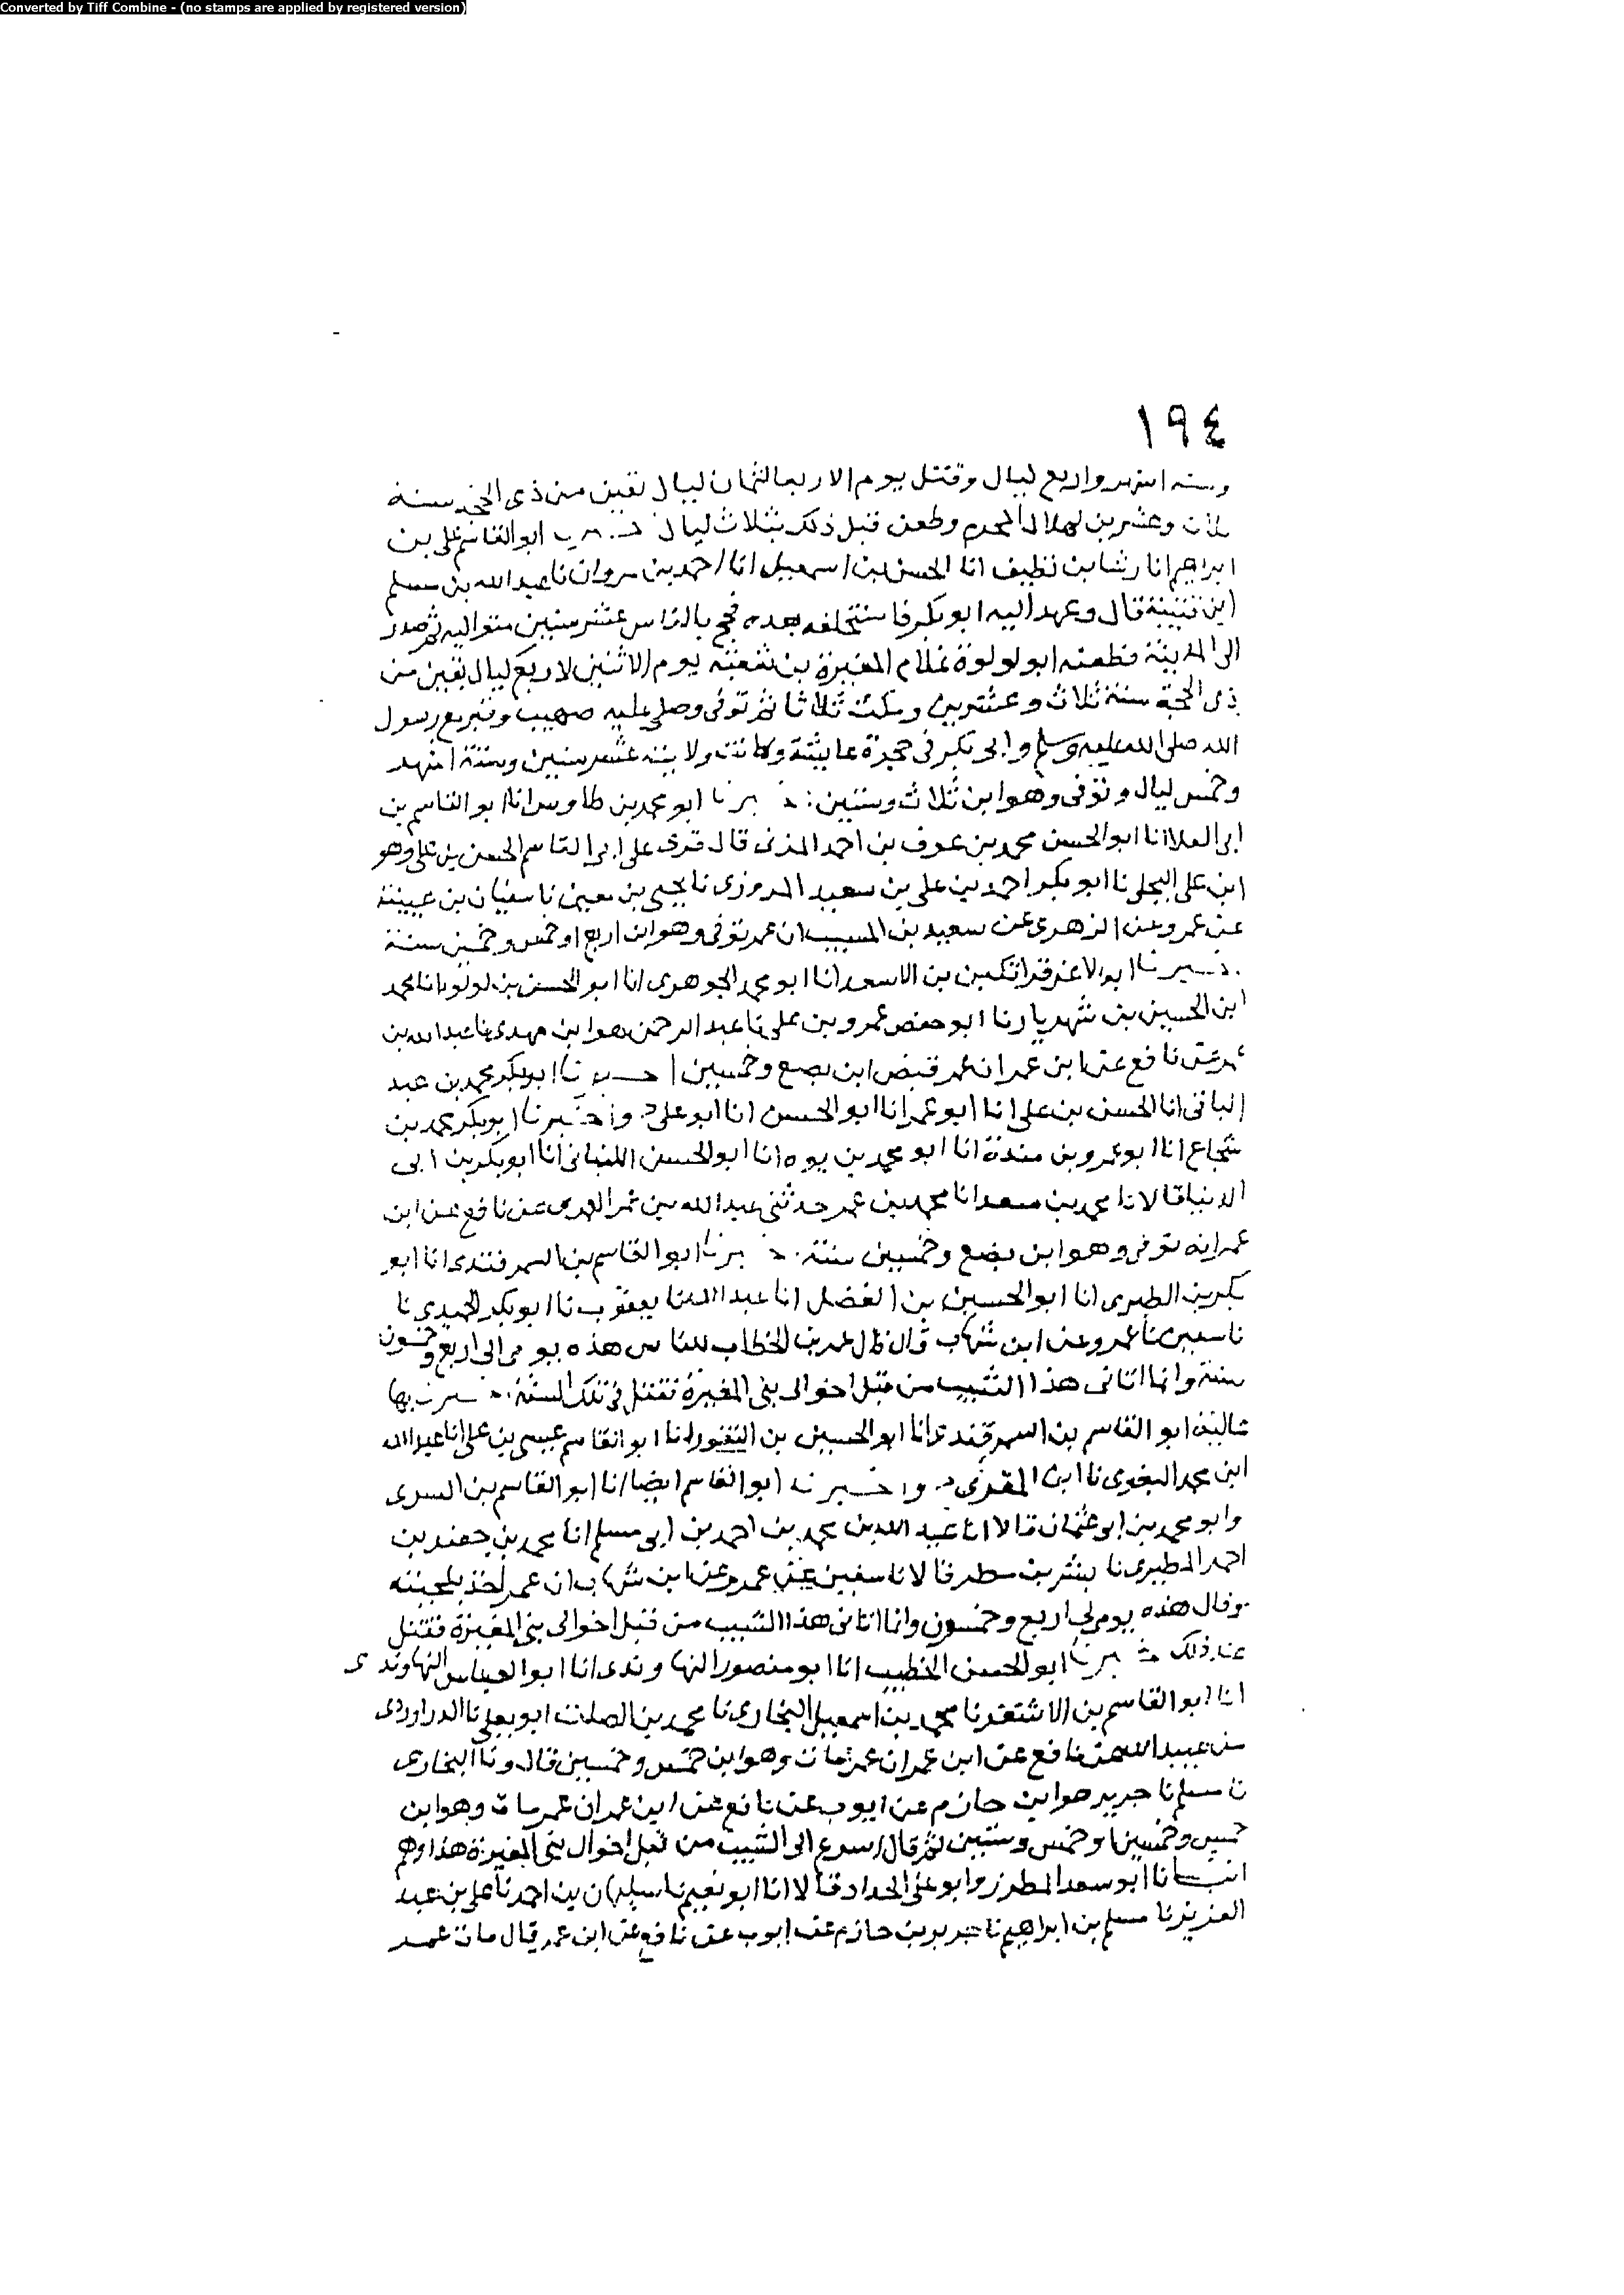 Converted by Tiff Combine - (no stamps are applied by registered version)
١٩٤
وسته اشهر واربع ليال وقتل يوم الاربعا لثمان ليال بقين من ذى الحجه سنة
ثلاث وعشرين لهلال المحرم وطعن قبل ذلك بثلاث ليال ابو القاسم على بن
ابراهيم انا رشا بن نظيف انا الحسن بن اسمعيل انا احمد بن مروان نا عبد الله بن مسلم
ابن قتيبة قال وعهد اليه ابو بكر فاستخلفه بعده فحج بالناس عشر سنين متواليه ثم صدر
الى المدينة فطعنه ابو لولوة غلام المغيرة بن شعبه يوم الاثنين لاربع ليال بقين من
ذى الحجة سنة ثلاث وعشرين ومكث ثلاثا ثم توفى وصلى عليه صهيب وقبر مع رسول
الله صلى الله عليه وسلم وابى بكر فى حجرة عايشة وكانت ولايته عشر سنين وستة اشهر
وخمس ليال وتوفى وهو ابن ثلاث وستين ابو محمد بن طاوس انا ابو القاسم بن
ابى العلا انا ابو الحسن محمد بن عوف بن احمد المزنى قال قرى على ابى القاسم الحسن بن على وهو
ابن على البجلى نا ابو بكر احمد بن على بن سعيد المروزى نا يحيى بن معين نا سفيان بن عيينة
عن عمرو عن الزهرى عن سعيد بن المسيب ان عمر توفى وهو ابن اربع او خمس وخمسين سنة
ابو الاعز قراتكين بن الاسعد انا ابو محمد الجوهرى انا ابو الحسن بن لولو انا محمد
ابن الحسين بن شهريار نا ابو حفص عمرو بن على نا عبد الرحمن هو ابن مهدى نا عبد الله بن
عمر عن نافع عن ابن عمر ان عمر قبض ابن بضع وخمسين ابو بكر محمد بن عبد
الباقى انا الحسن بن على انا ابو عمر انا ابو الحسن انا ابو على واخبرنا ابو بكر محمد بن
شجاع انا ابو عمرو بن مندة انا ابو محمد بن يوه انا ابو الحسن اللنبانى انا ابو بكر بن ابى
الدنيا قالا نا محمد بن سعد انا محمد بن عمر حدثنى عبد الله بن عمر العمرى عن نافع عن ابن
عمر انه توفى وهو ابن بضع وخمسين سنة ابو القاسم بن السمرقندى انا ابو
بكر بن الطبرى انا ابو الحسين بن الفضل انا عبد الله نا يعقوب نا ابو بكر الحميدى نا
نا سفين نا عمرو عن ابن شهاب قال قال عمر بن الخطاب للناس هذه يومى الى اربع وخمسون
سنة وانما اتانى هذا الشيب من قبل اخوالى بنى المغيرة فقتل فى تلك السنة بها
عاليه ابو القاسم بن السمرقندى انا ابو الحسين بن النقور انا ابو القاسم عيسى بن على انا عبد الله
ابن محمد البغوى نا ابن المقرى واخبرنا ابو القاسم ايضا انا ابو القاسم بن السرى
وابو محمد بن ابى عثمان قالا انا عبيد الله بن محمد بن احمد بن ابى مسلم انا محمد بن جعفر بن
احمد المطيرى نا بشر بن مطر قالا نا سفين عن عمرو عن ابن شهاب ان عمر اخذ بلحيته
وقال هذه يوم لى اربع وخمسون وانما اتانى هذا الشيب من قبل اخوالى بنى المغيرة فقتل
عند ذلك ابو الحسن الخطيب انا ابو منصور النهاوندى انا ابو العباس النهاوندى
انا ابو القاسم بن الاشقر نا محمد بن اسمعيل البخارى نا محمد بن الصلت ابو يعلى نا الدراوردى
عن عبيد الله عن نافع عن ابن عمر ان عمر مات وهو ابن خمس وخمسين قال ونا البخارى
نا مسلم نا جرير هو ابن حازم عن ايوب عن نافع عن ابن عمر ان عمر مات وهو ابن
خمس وخمسين او خمس وستين ثم قال اسرع الى الشيب من قبل اخوال بنى المغيرة هذا وهم
انبانا ابو سعد المطرز وابو على الحداد قالا انا ابو نعيم نا سليمان بن احمد نا على بن عبد
العزيز نا مسلم بن ابراهيم نا جرير بن حازم عن ايوب عن نافع عن ابن عمر قال مات عمر